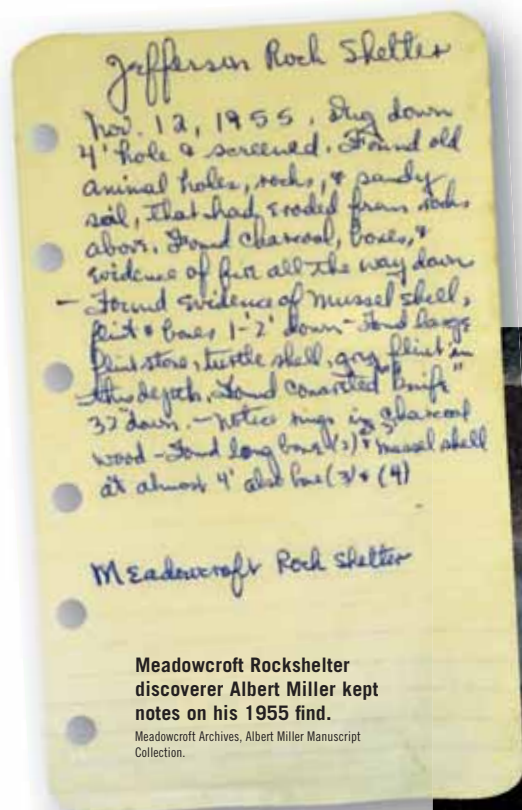 Jefferson Rock Shelter
Nov. 12, 1955. Dug down
4' hole & screened. Found old
animal holes, rocks, & sandy
soil, that had eroded from rocks
above. Found charcoal, bones, &
evidence of fire all the way down
- Found evidence of mussel shell,
flint & bones 1-2' down - Found large
flint stone, turtle shell, gray flint in
this depth. Found "knife"
37" down. - Notice rings in charcoal
wood - Found long bone (2) & mussel shell
at almost 4' also bone (3) & (4)
Meadowcroft Rock Shelter
Meadowcroft Rockshelter
discoverer Albert Miller kept
notes on his 1955 find.
Meadowcroft Archives, Albert Miller Manuscript
Collection.